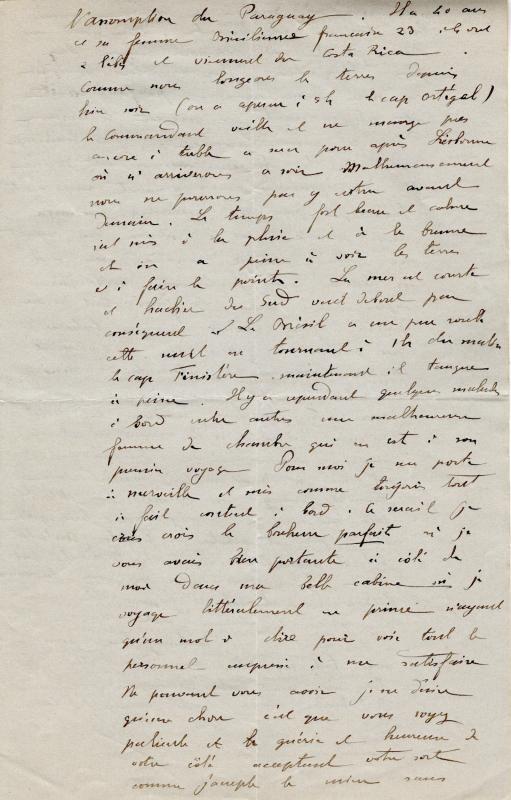 l'assomption du Paraguay. Il a 40 ans
et sa femme Brésilienne française 23 ils ont
et viennent du Costa Rica.
Comme nous longeons les terres depuis
hier soir (on a aperçu à 5h le cap Ortégal)
le commandant veille et ne mange pas
encore à table ce sera pour après Lisbonne
où n' arriverons ce soir Malheureusement
nous ne pourrons pas y être avant
demain. Le temps fort beau et calme
s'est mis à la pluie et à la brume
et on a peine à voir les terres
et à faire le point. La mer est courte
et hachée du Sud vent debout par
conséquent et Le Brésil a un peu roulé
cette nuit en tournant à 1h du matin
le cap Finistère maintenant il tangue
à peine. Il y a cependant quelques malades
à bord entre autres une malheureuse
femme de chambre qui en est à son
premier voyage Pour moi je me porte
à merveille et suis comme toujours tout
à fait content à bord. Ce serait je
crois le bonheur parfait si je
vous avais bien portante à côté de
moi dans ma belle cabine où je
voyage littéralement en prince n'ayant
qu'un mot à dire pour voir tout le
personnel empressé à me satisfaire
Ne pouvant vous avoir je ne désire
qu'une chose c'est que vous soyez
patiente et guérie et heureuse de
votre côté acceptant votre sort
comme j'accepte le mien sans